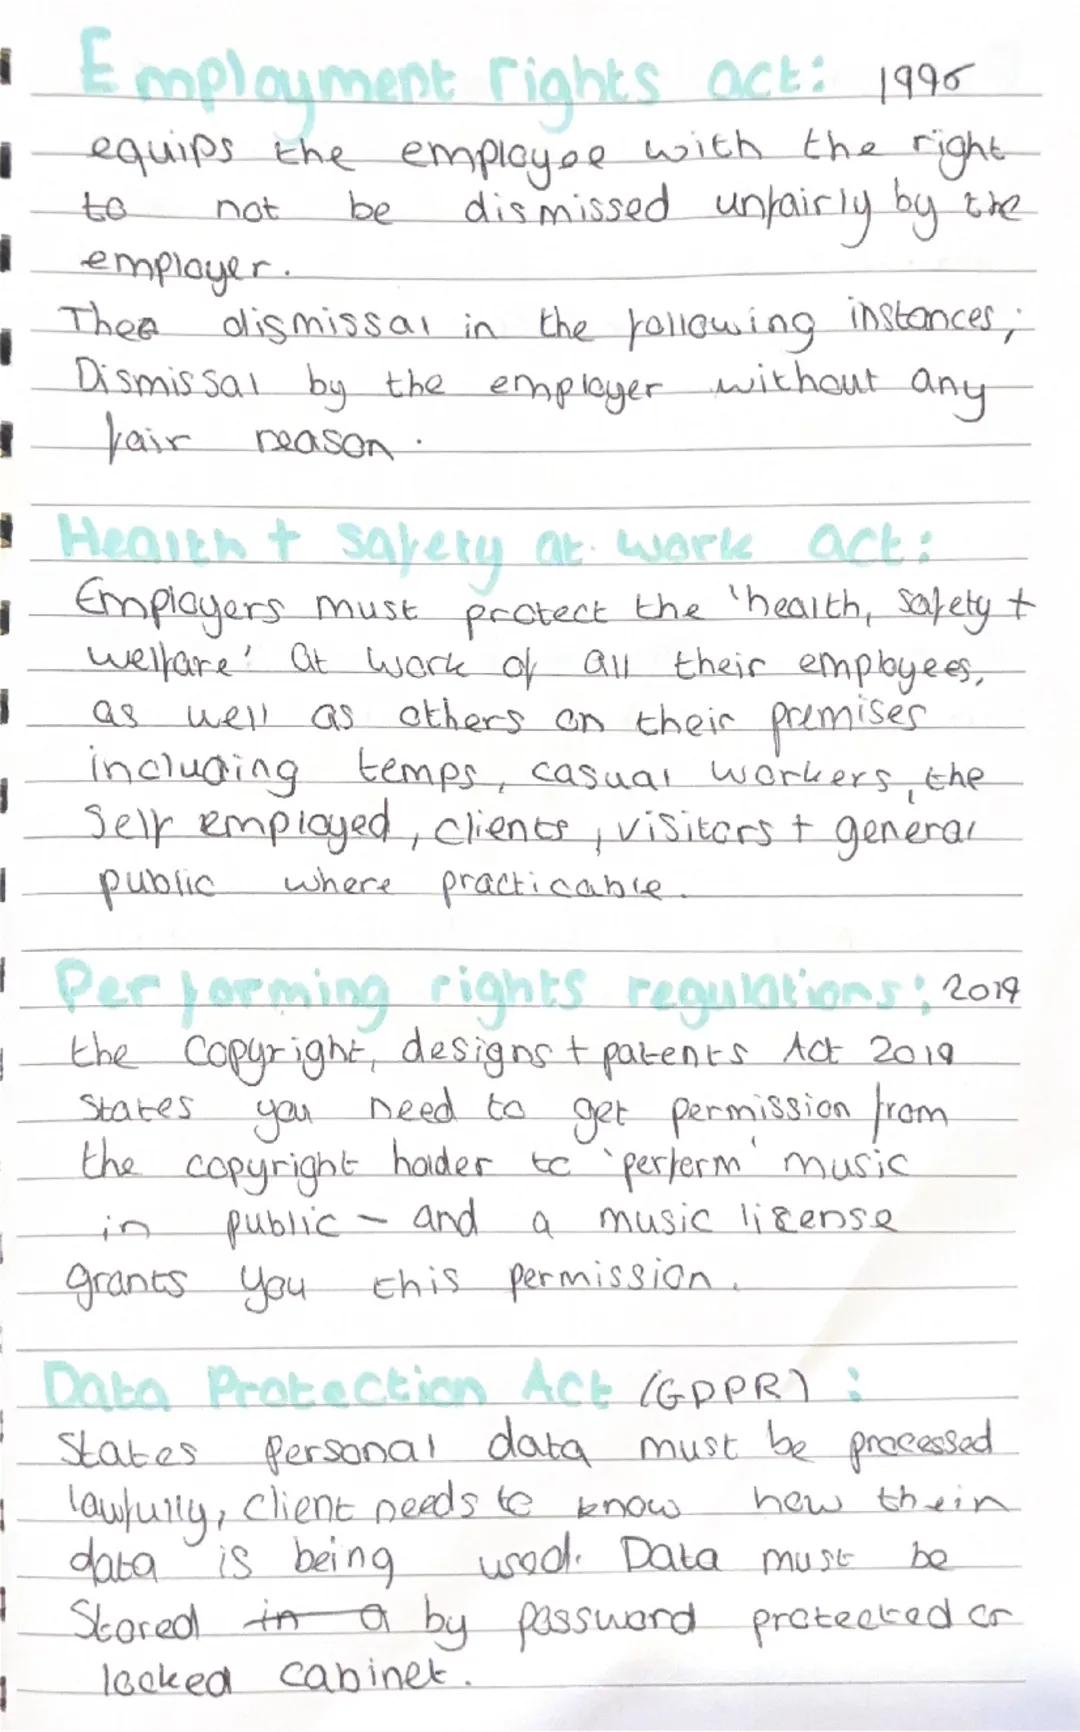 Employment rights act: 1996
equips the employee with the right
to not be dismissed unfairly by the
employer.
The dismissal in the following instances;
Dismissal by the employer without any
fair reason.
Health + safety at work act:
Employers must protect the 'health, safety +
welfare' at work of all their employees,
as well as others on their premises
including temps, casual workers, the
self employed, clients, visitors + general
public where practicable.
Performing rights regulations: 2019
the copyright, designs + patents Act 2019
states you need to get permission from
the copyright holder to 'perform' music
in public - and a music license
grants you this permission.
Data Protection Act (GDPR):
States personal data must be processed
lawfully, client needs to know how their
data is being used. Data must be
Stored in a by password protected or
locked cabinet.